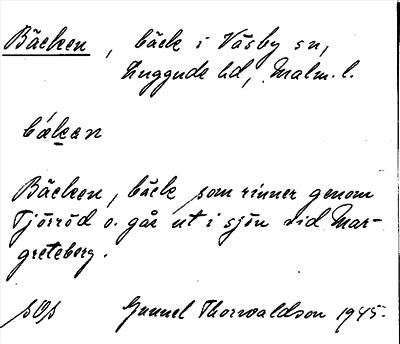 Bäcken, bäck i Väsby sn,
Luggude hd, Malm. l.
bä́kan
Bäcken, bäck som rinner genom
Tjörröd o. går ut i sjön vid Mar-
greteberg.
Gunnel Thorwaldson 1945.